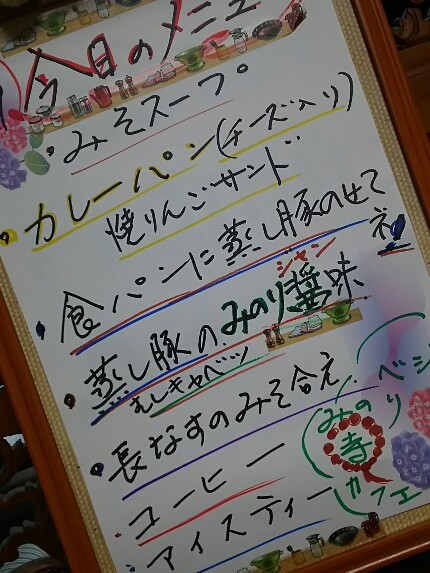 今日のメニュ
・みそスープ
・カレーパン(チーズ入り)
焼りんごサンド
・食パンに蒸し豚のせてネ
ジャン
・蒸し豚のみのり醤味
むしキャベツ
・長なすのみそ合え
・コーヒー
・アイスティー
ベジ
みのり
寺
カフェ